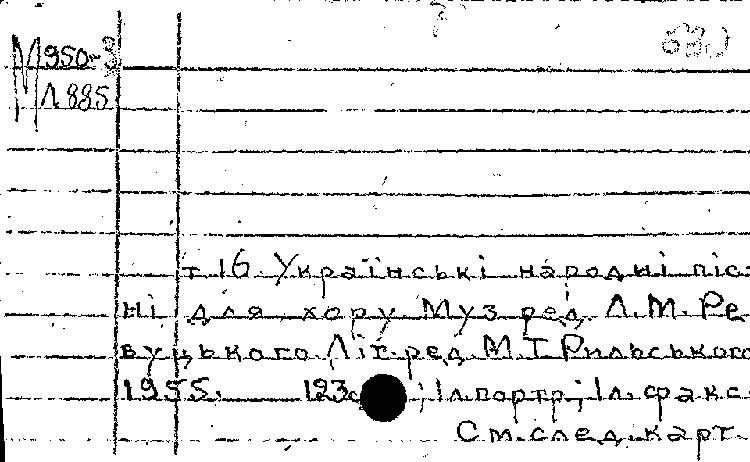 М950-3
Л885
т 16 Українські народні піс-
ні для хору Муз ред. Л.М. Ре
вуцького. Літ. ред. М.Т Рильського
1955. 123с ; 1л. портр; 1л. факс
См. след. карт.